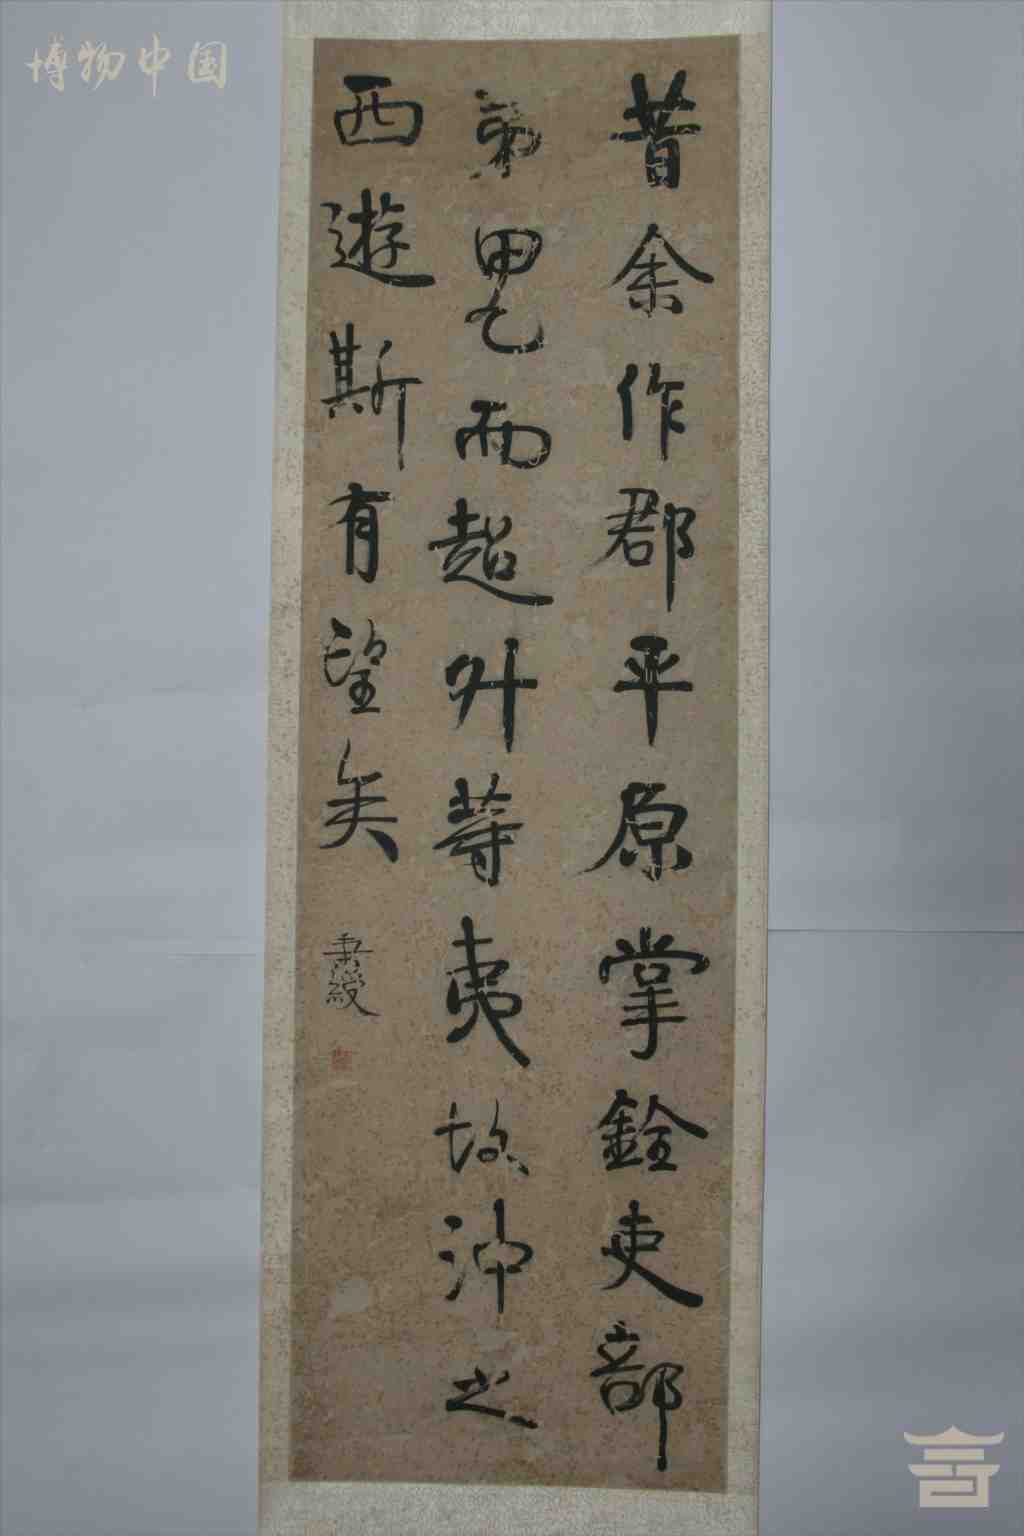 博物中国
昔余作郡平原掌銓吏部
第甲乙而超升等夷故沖之
西遊斯有望矣
秉綬